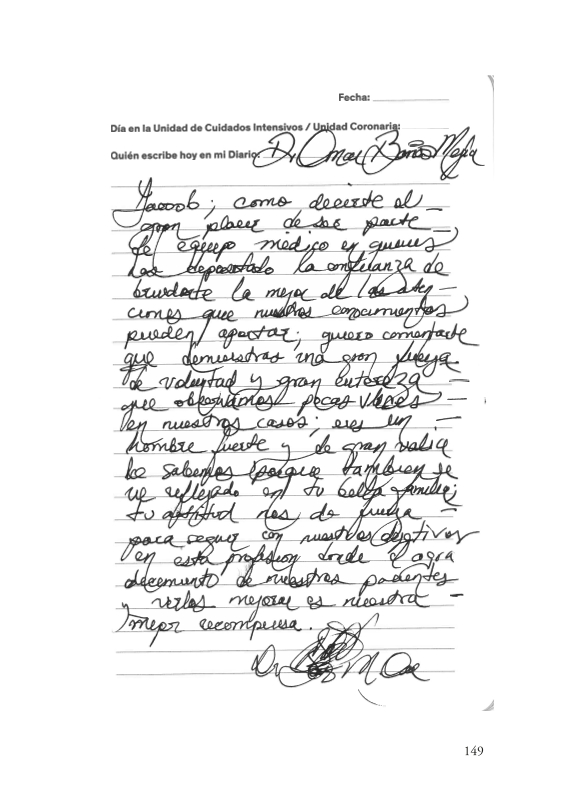 Fecha:
Día en la Unidad de Cuidados Intensivos / Unidad Coronaria:
Quién escribe hoy en mi Diario: Dr Omar Mejia
Jacoob; como decirte el
gran placer de ser parte
de equipo medico en quienes
has depositado la confianza de
brindarte la mejor de las aten -
ciones que nuestros conocimientos
pueden aportar; quiero comentarte
que demuestras una gran fuerza
de voluntad y gran entereza
que observamos pocas veces
en nuestros casos; eres un
hombre fuerte y de gran valia
lo sabemos porque tambien se
ve reflejado en tu bella familia;
tu aptitud nos da fuerza
para seguir con nuestros objetivos
en esta profesion donde el agra
decimiento de nuestros pacientes
y verlos mejorar es nuestra
mejor recompensa.
Dr
149